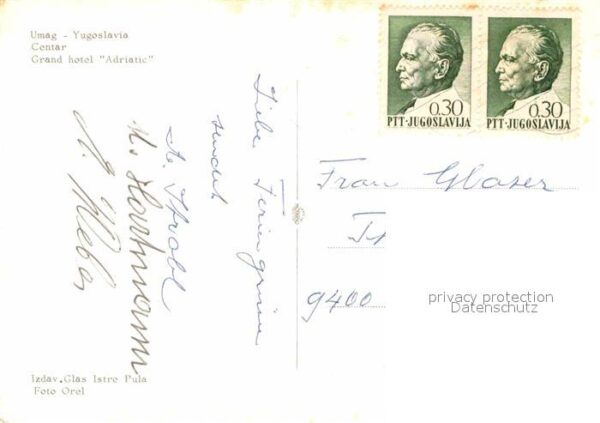 Umag - Yugoslavia
Centar
Grand hotel "Adriatic"
0.30
PTT-JUGOSLAVIJA
0.30
PTT-JUGOSLAVIJA
Liebe Feriengrüsse
sendet
A. Strobl
K. Hartmann
A. Weber
Frau Glaser
9400
privacy protection
Datenschutz
Izdav. Glas Istre Pula
Foto Orel